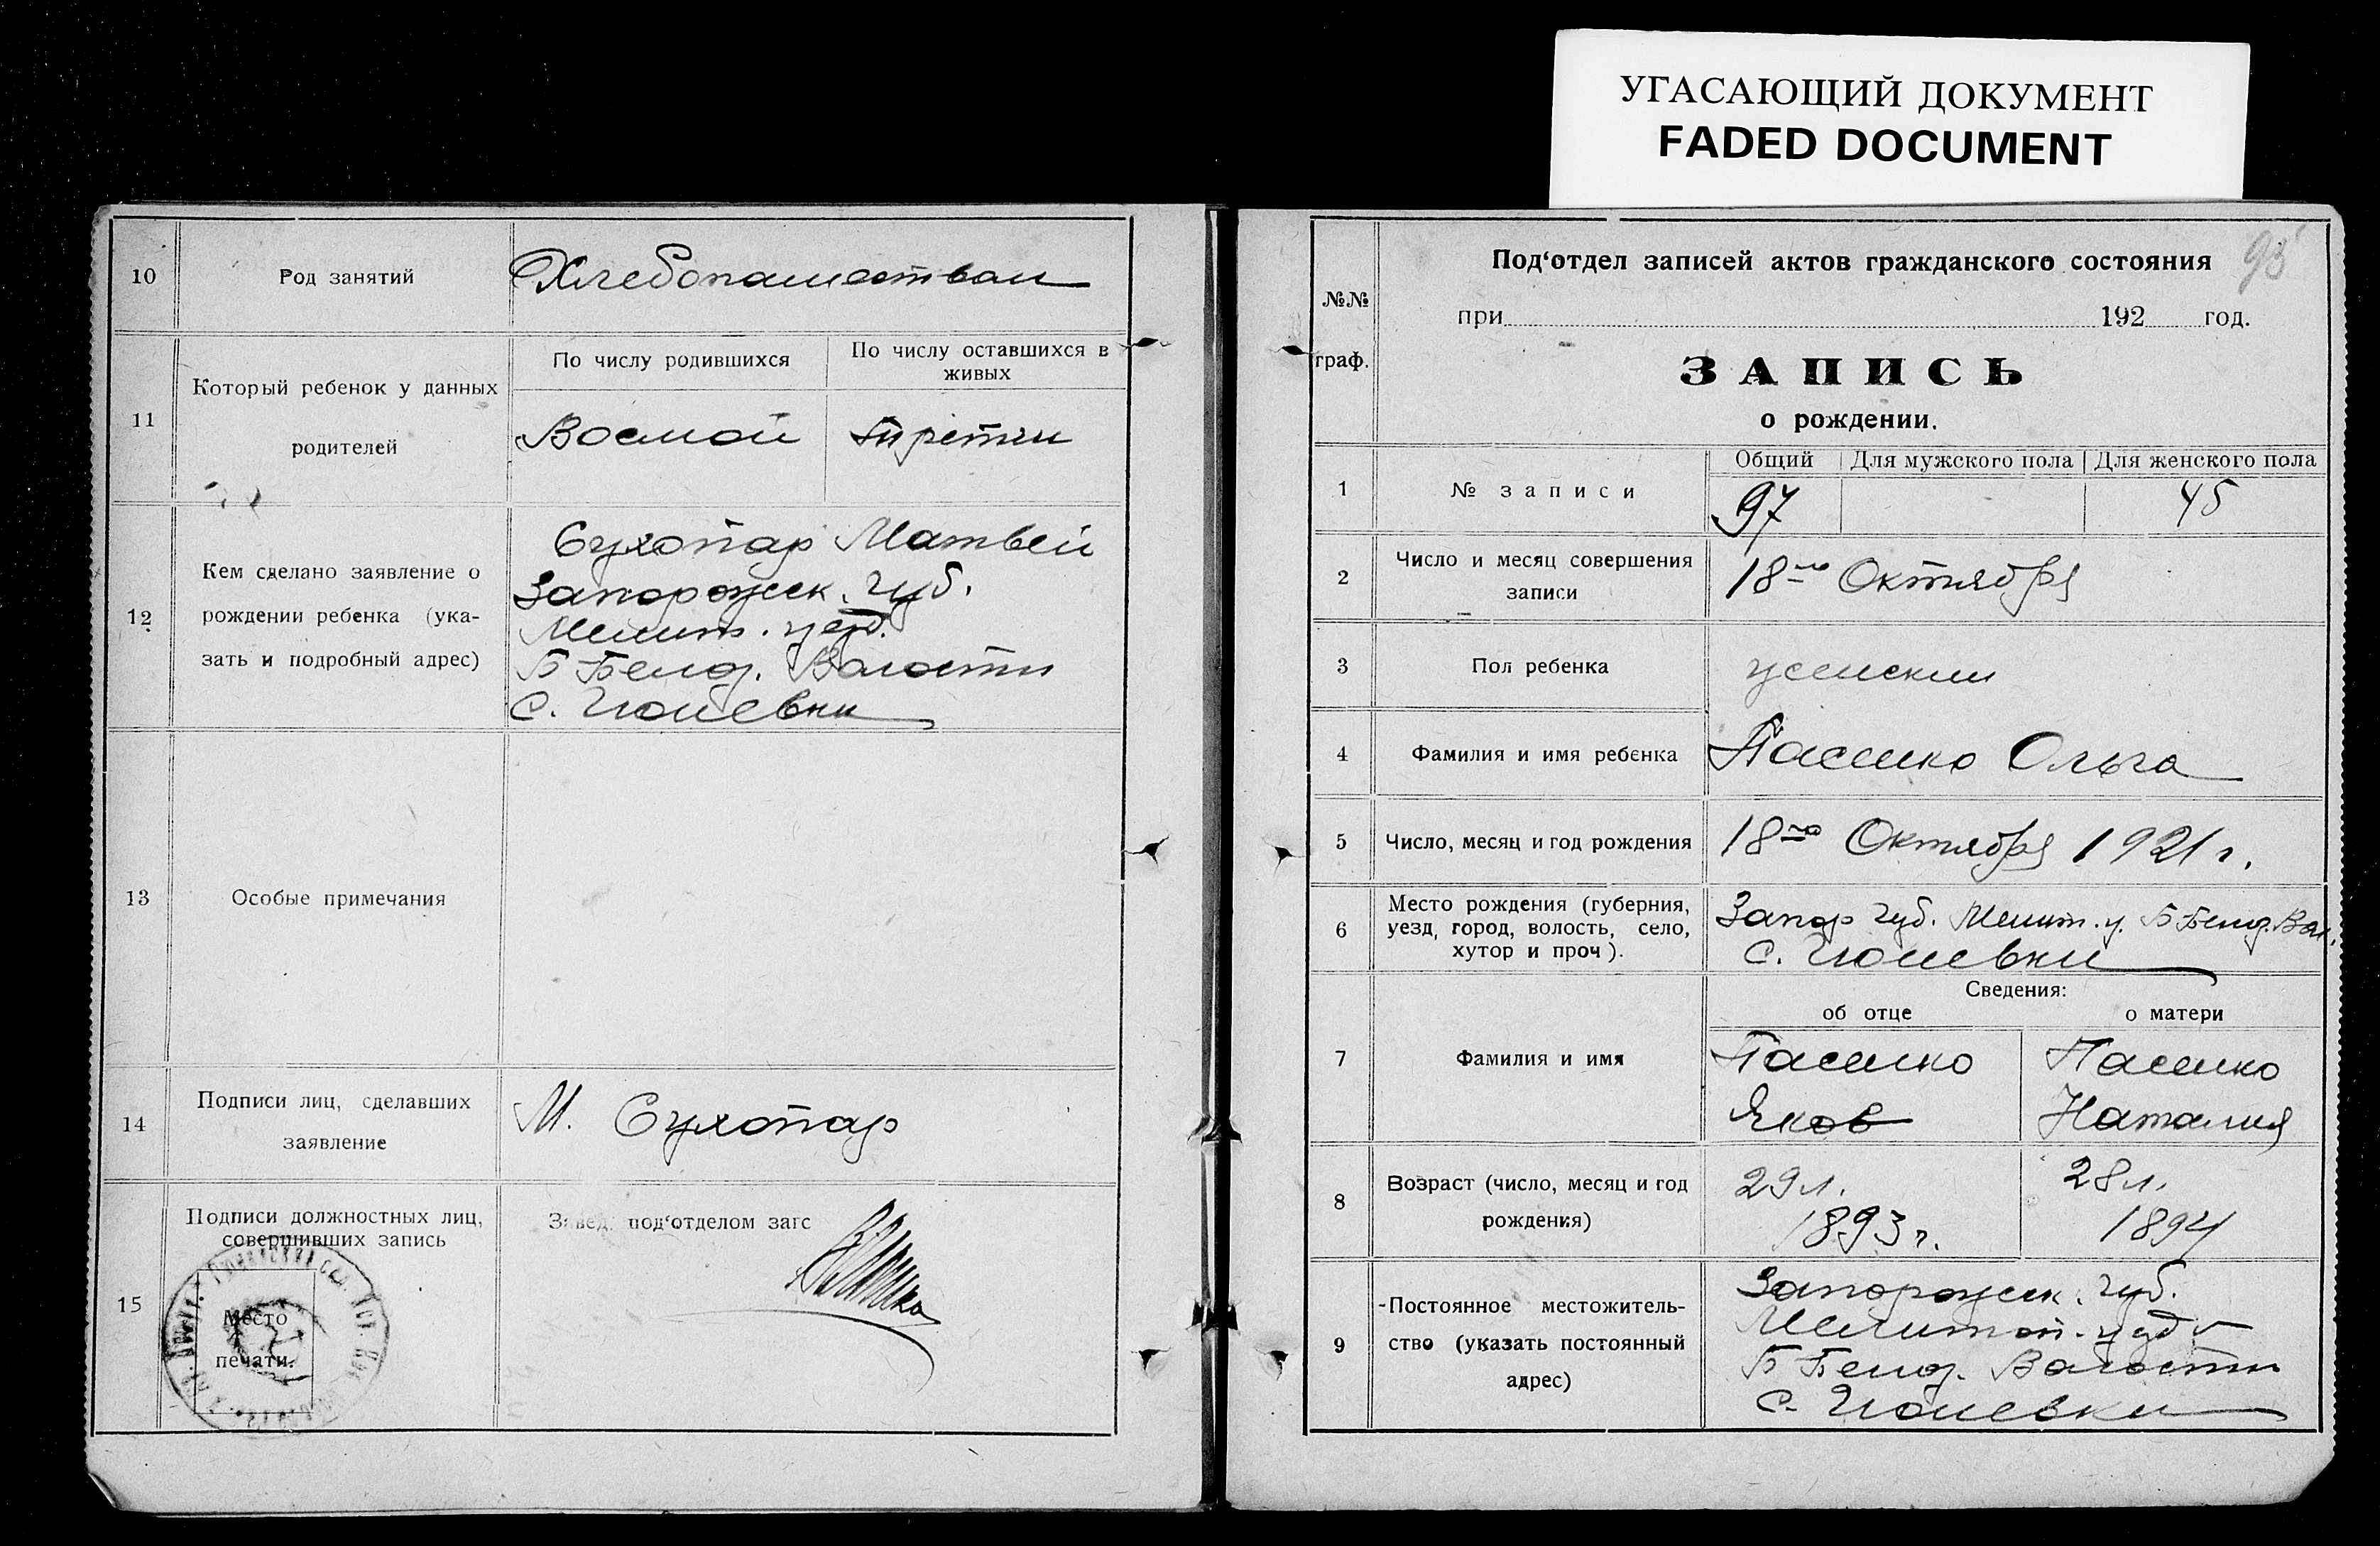 УГАСАЮЩИЙ ДОКУМЕНТ
FADED DOCUMENT
10
Род занятий
Хлебопашеством
11
Который ребенок у данных
родителей
По числу родившихся
По числу оставшихся в
живых
Восмой
третий
12
Кем сделано заявление о
рождении ребенка (ука-
зать и подробный адрес)
Сухопар Матвей
Запорожск. губ.
Мелит. уезд.
Б Белоз. Волости
С. Гюневки
13
Особые примечания
14
Подписи лиц, сделавших
заявление
М. Сухопар
15
Подписи должностных лиц,
совершивших запись
Завед. под‘отделом загс
Место
печати.
93
№№
граф.
Под‘отдел записей актов гражданского состояния
при 192 год.
ЗАПИСЬ
о рождении.
1
№ записи
Общий Для мужского пола Для женского пола
97 45
2
Число и месяц совершения
записи
18го Октября
3
Пол ребенка
женский
4
Фамилия и имя ребенка
Пасенко Ольга
5
Число, месяц и год рождения
18го Октября 1921 г.
6
Место рождения (губерния,
уезд, город, волость, село,
хутор и проч).
Запор губ. Мелит. у. Б Белоз. Вол.
С. Гюневки
Сведения:
об отце о матери
7
Фамилия и имя
Пасенко Пасенко
Яков Наталия
8
Возраст (число, месяц и год
рождения)
29 л. 28 л.
1893 г. 1894
9
Постоянное местожитель-
ство (указать постоянный
адрес)
Запорожск. губ.
Мелитоп. уезд
Б Белоз. Волости
С. Гюневки